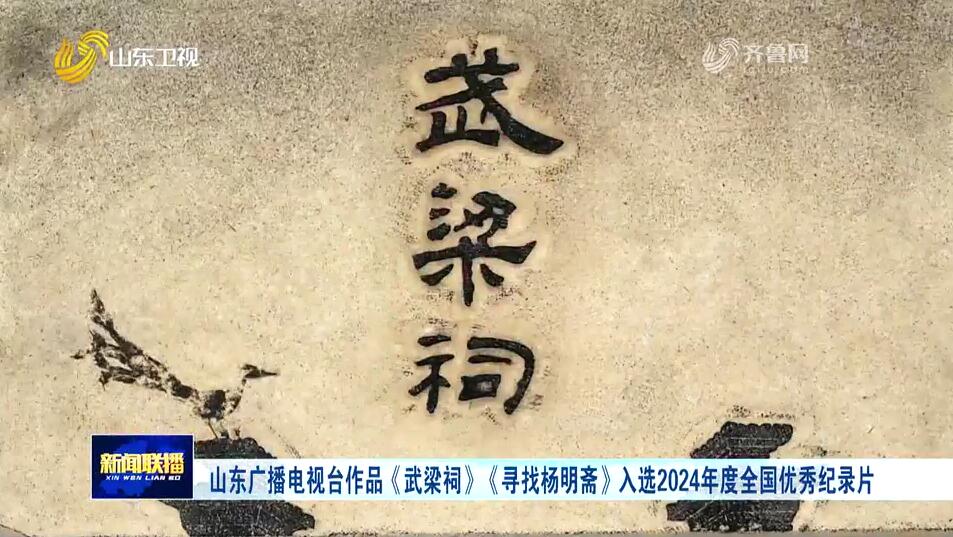 山东卫视
齐鲁网
武
梁
祠
新闻联播
XIN WEN LIAN BO
山东广播电视台作品《武梁祠》《寻找杨明斋》入选2024年度全国优秀纪录片